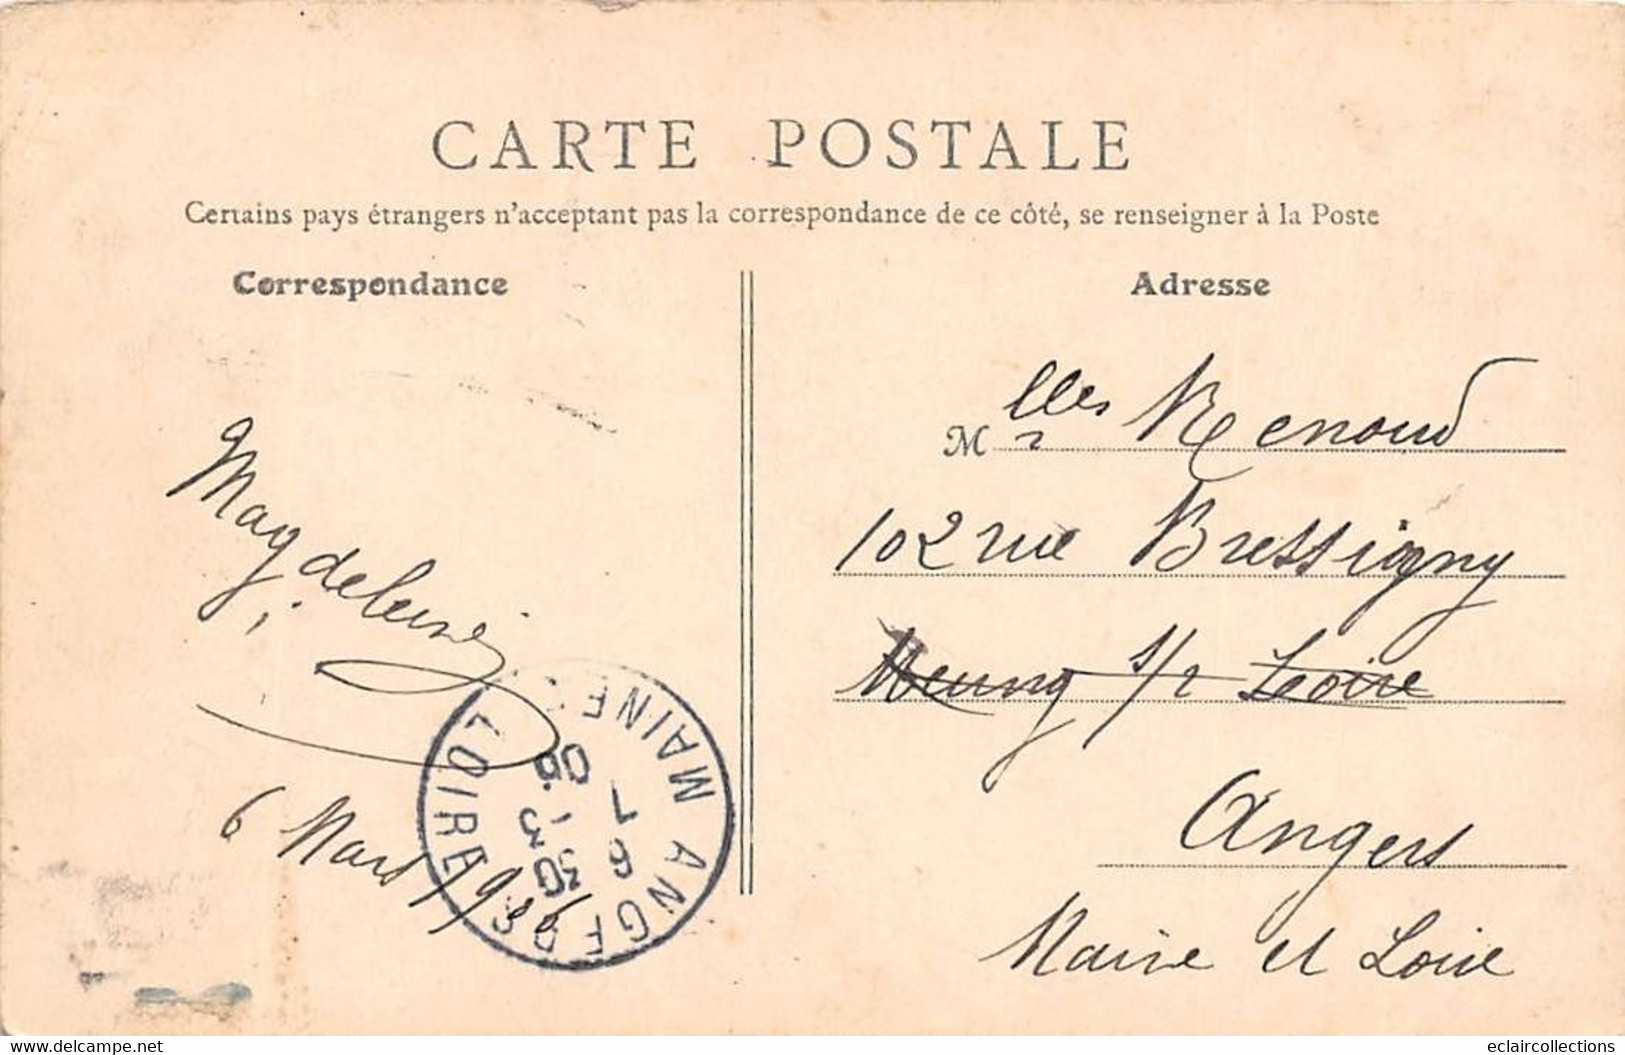 CARTE POSTALE
Certains pays étrangers n'acceptant pas la correspondance de ce côté, se renseigner à la Poste
Correspondance
Magdeleine
6 Mars 1906
ANGERS
MAINE
LOIRE
Adresse
Mlles Renoud
102 rue Bressigny
Meung s/r Loire
Angers
Maine et Loire
www.delcampe.net
eclaircollections